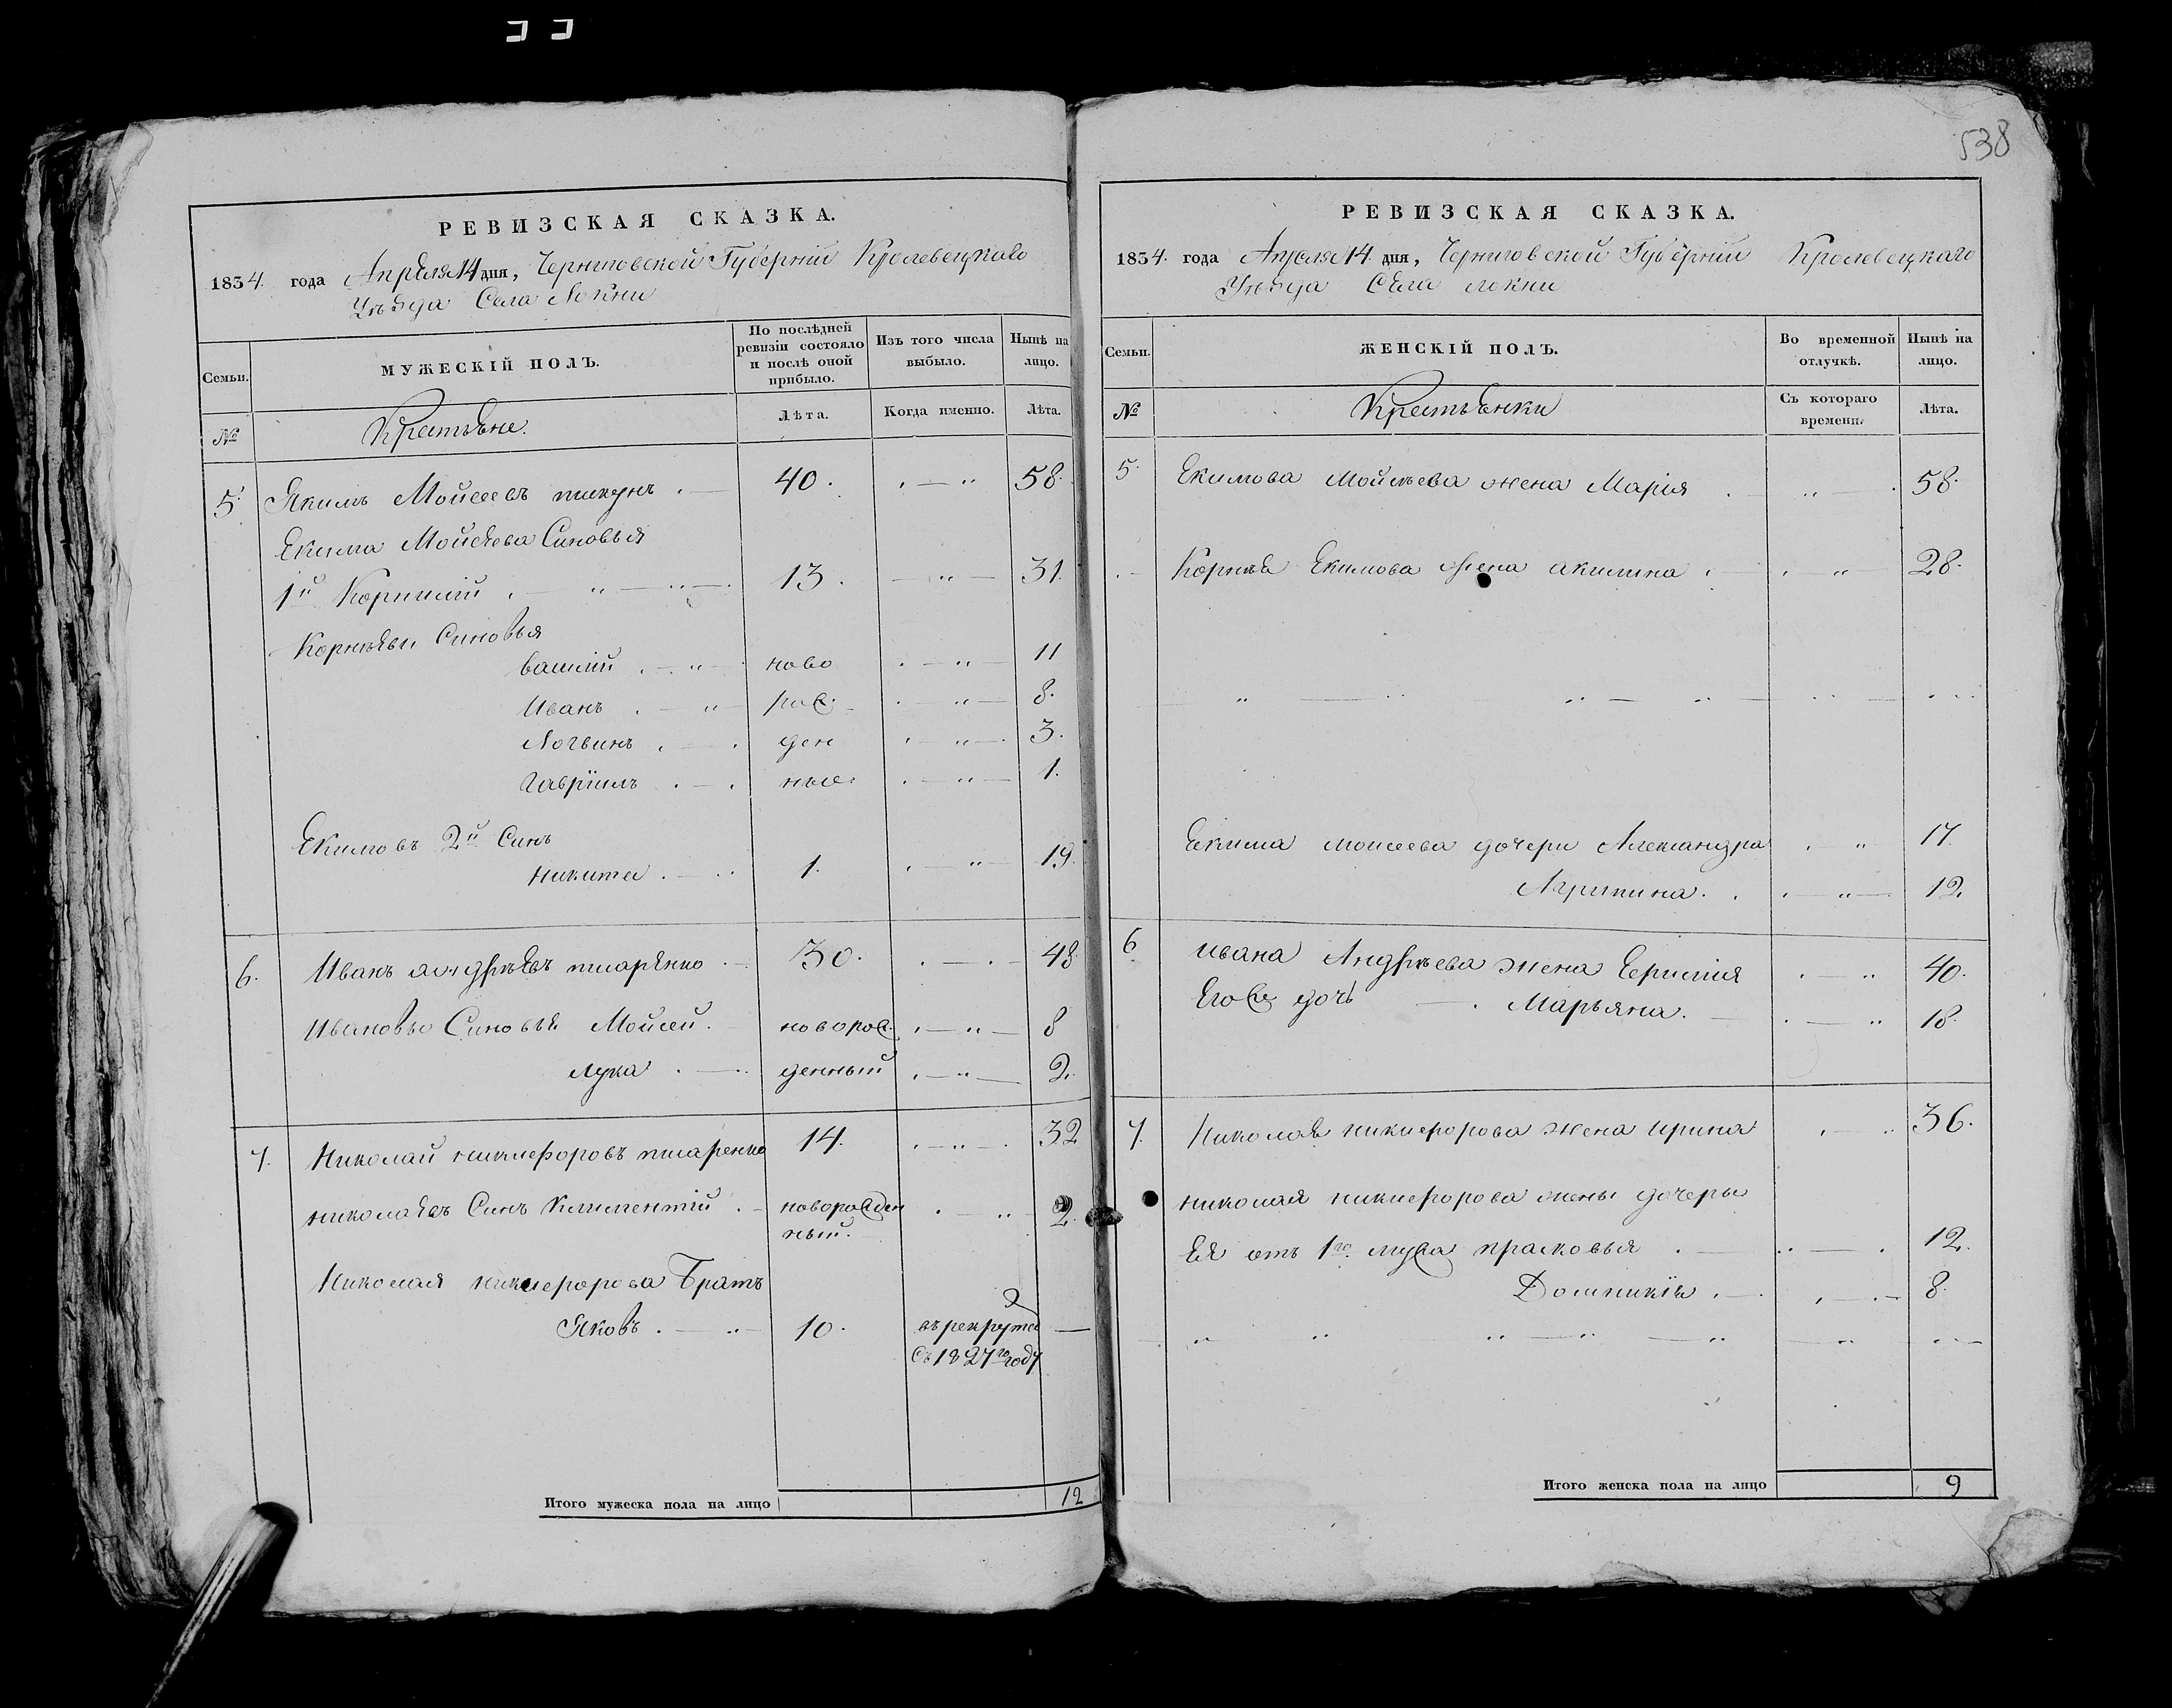 538
РЕВИЗСКАЯ СКАЗКА.
1834. года Апреля 14 дня, Черниговской Губерніи Кролевецкаго
Уѣзда Села Локни
Семьи.
МУЖЕСКІЙ ПОЛЪ.
По послѣдней ревизіи состояло и послѣ оной прибыло.
Изъ того числа выбыло.
Нынѣ на лицо.
№
Крестьяне.
Лѣта.
Когда именно.
Лѣта.
5. Якимъ Моисеевъ 40. 58.
Екима Моисеева Синовья
1й Корнилій 13. 31.
Корнѣевы Синовья
василій ново 11
Иванъ рож 8.
Логвинъ ден 3.
Гавріилъ ные. 1.
Екимовъ 2й Синъ
Никита 1. 19.
6. Иванъ андрѣевъ писаренко 30. 48
Ивановы Синовья Моисей. новорож 8
лука денный 2.
7. Николай никифоровъ писаренко 14. 32
николаевъ Синъ Климентій новорожден 2.
ный.
Николая никифорова Братъ
Яковъ 10. въ рекруты —
съ 1827го году
Итого мужеска пола на лицо 12
РЕВИЗСКАЯ СКАЗКА.
1834. года Апреля 14. дня, Черниговской Губерніи Кролевецкаго
Уѣзда Села локни
Семьи.
ЖЕНСКІЙ ПОЛЪ.
Во временной отлучкѣ.
Нынѣ на лицо.
№
Крестьянки
Съ котораго времени.
Лѣта.
5. Екимова Мойсѣева жена Марія 58.
Корнѣя Екимова жена акилина 28.
Екима моисеева дочери Александра 17.
Агрипина. 12.
6 ивана Андрѣева жена 40.
Его же дочь Марьяна. 18.
7. Николая никифорова жена ирина 36.
николая никифорова жены дочеры
Ея отъ 1го мужа прасковья 12.
Домникія 8.
Итого женска пола на лицо 9